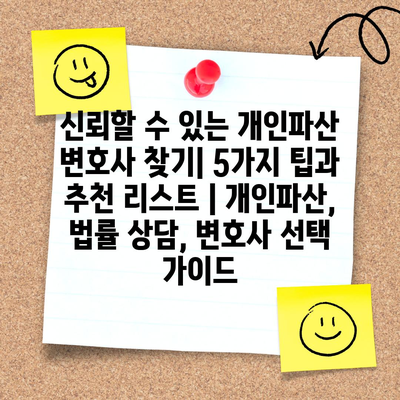 신뢰할 수 있는 개인파산
변호사 찾기| 5가지 팁과
추천 리스트 | 개인파산,
법률 상담, 변호사 선택
가이드